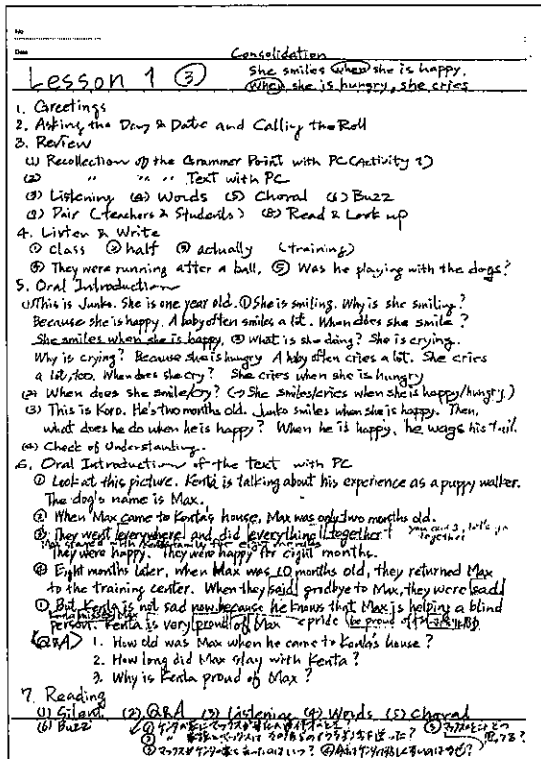 No
Date
Consolidation
Lesson 1 ③
She smiles when she is happy.
When she is hungry, she cries
1. Greetings
2. Asking the Day & Date and Calling the Roll
3. Review
(1) Recollection of the Grammer Point with PC (Activity 1)
(2) 〃 〃 〃 Text with PC
(3) Listening (4) Words (5) Choral (6) Buzz
(7) Pair (Teachers & Students) (8) Read & Look up
4. Listen & Write
① class ② half ③ actually (training)
④ They were running after a ball. ⑤ Was he playing with the dogs?
5. Oral Introduction
(1) This is Junko. She is one year old. ① She is smiling. Why is she smiling?
Because she is happy. A baby often smiles a lot. When does she smile?
She smiles when she is happy. ② What is she doing? She is crying.
Why is crying? Because she is hungry A baby often cries a lot. She cries
a lot, too. When does she cry? She cries when she is hungry
(2) When does she smile/cry? (→ She smiles/cries when she is happy/hungry.)
(3) This is Koro. He's two months old. Junko smiles when she is happy. Then,
what does he do when he is happy? When he is happy, he wags his tail.
(4) Check of Understanding.
6. Oral Introduction of the text with PC
① Look at this picture. Kenta is talking about his experience as a puppy walker.
The dog's name is Max.
② When Max came to Kenta's house, Max was only two months old.
③ They went everywhere and did everything together
together
Max stayed with family for eight months
They were happy. They were happy for eight months.
④ Eight months later, when Max was 10 months old, they returned Max
to the training center. When they said goodbye to Max, they were sad
① But Kenta is not sad now because he knows that Max is helping a blind
person. Kenta is very proud of Max pride be proud of
<Q&A> 1. How old was Max when he came to Kenta's house?
2. How long did Max stay with Kenta?
3. Why is Kenta proud of Max?
7. Reading
(1) Silent (2) Q&A (3) Listening (4) Words (5) Choral
(6) Buzz